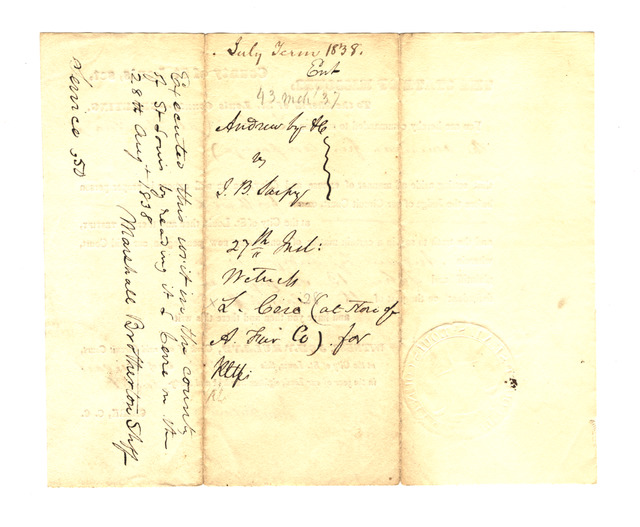 July Term 1838.
Ent
43. Mch '37
Andrew by &C
vs
J. B. Sarpy
27th Inst:
Witness
L. Cere (at store of
A. Fair Co) for
Pltfs
Executed this writ in the county
of St Louis by reading it L Cere on the
28th Augt 1838
Marshall Brotherton Shff
Service .50